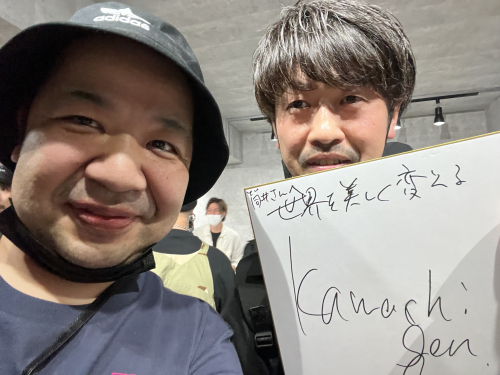 adidas
筒井さんへ
世界を美しく変える
Kawachi
Gen